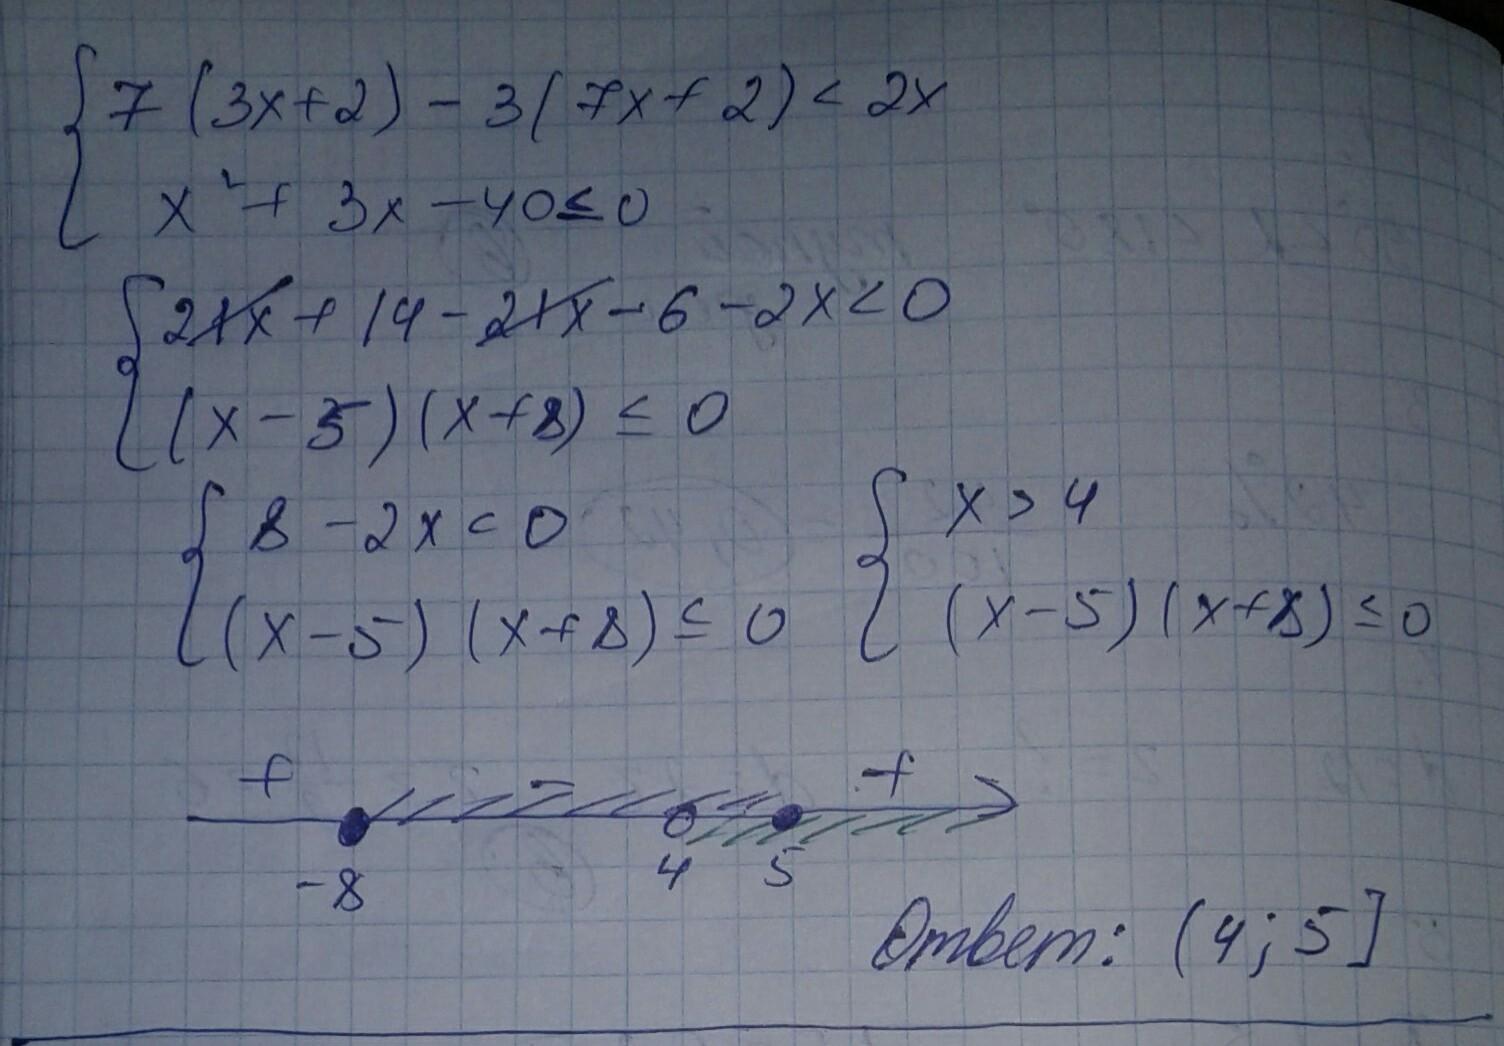 7(3x+2)-3(7x+2)<2x
x²+3x-40≤0
21x+14-21x-6-2x<0
(x-5)(x+8)≤0
8-2x<0 x>4
(x-5)(x+8)≤0 (x-5)(x+8)≤0
+ - +
-8 4 5
Ответ: (4;5]